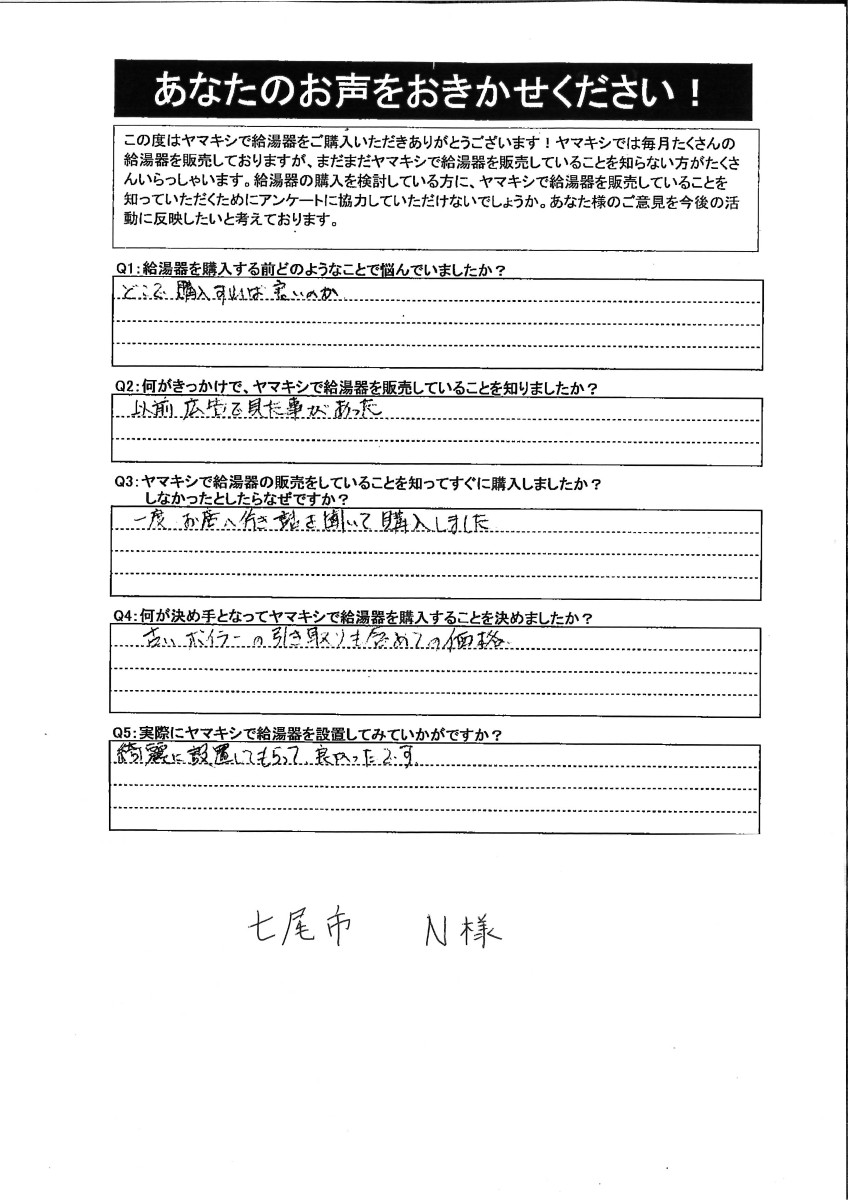 あなたのお声をおきかせください！
この度はヤマキシで給湯器をご購入いただきありがとうございます！ヤマキシでは毎月たくさんの
給湯器を販売しておりますが、まだまだヤマキシで給湯器を販売していることを知らない方がたくさ
んいらっしゃいます。給湯器の購入を検討している方に、ヤマキシで給湯器を販売していることを
知っていただくためにアンケートに協力していただけないでしょうか。あなた様のご意見を今後の活
動に反映したいと考えております。
Q1：給湯器を購入する前どのようなことで悩んでいましたか？
どこで購入すれば良いのか
Q2：何がきっかけで、ヤマキシで給湯器を販売していることを知りましたか？
以前広告で見た事があった
Q3：ヤマキシで給湯器の販売をしていることを知ってすぐに購入しましたか？
しなかったとしたらなぜですか？
一度お店へ行き話を聞いて購入しました
Q4：何が決め手となってヤマキシで給湯器を購入することを決めましたか？
古いボイラーの引き取りも含めての価格
Q5：実際にヤマキシで給湯器を設置してみていかがですか？
綺麗に設置してもらって良かったです。
七尾市 N様